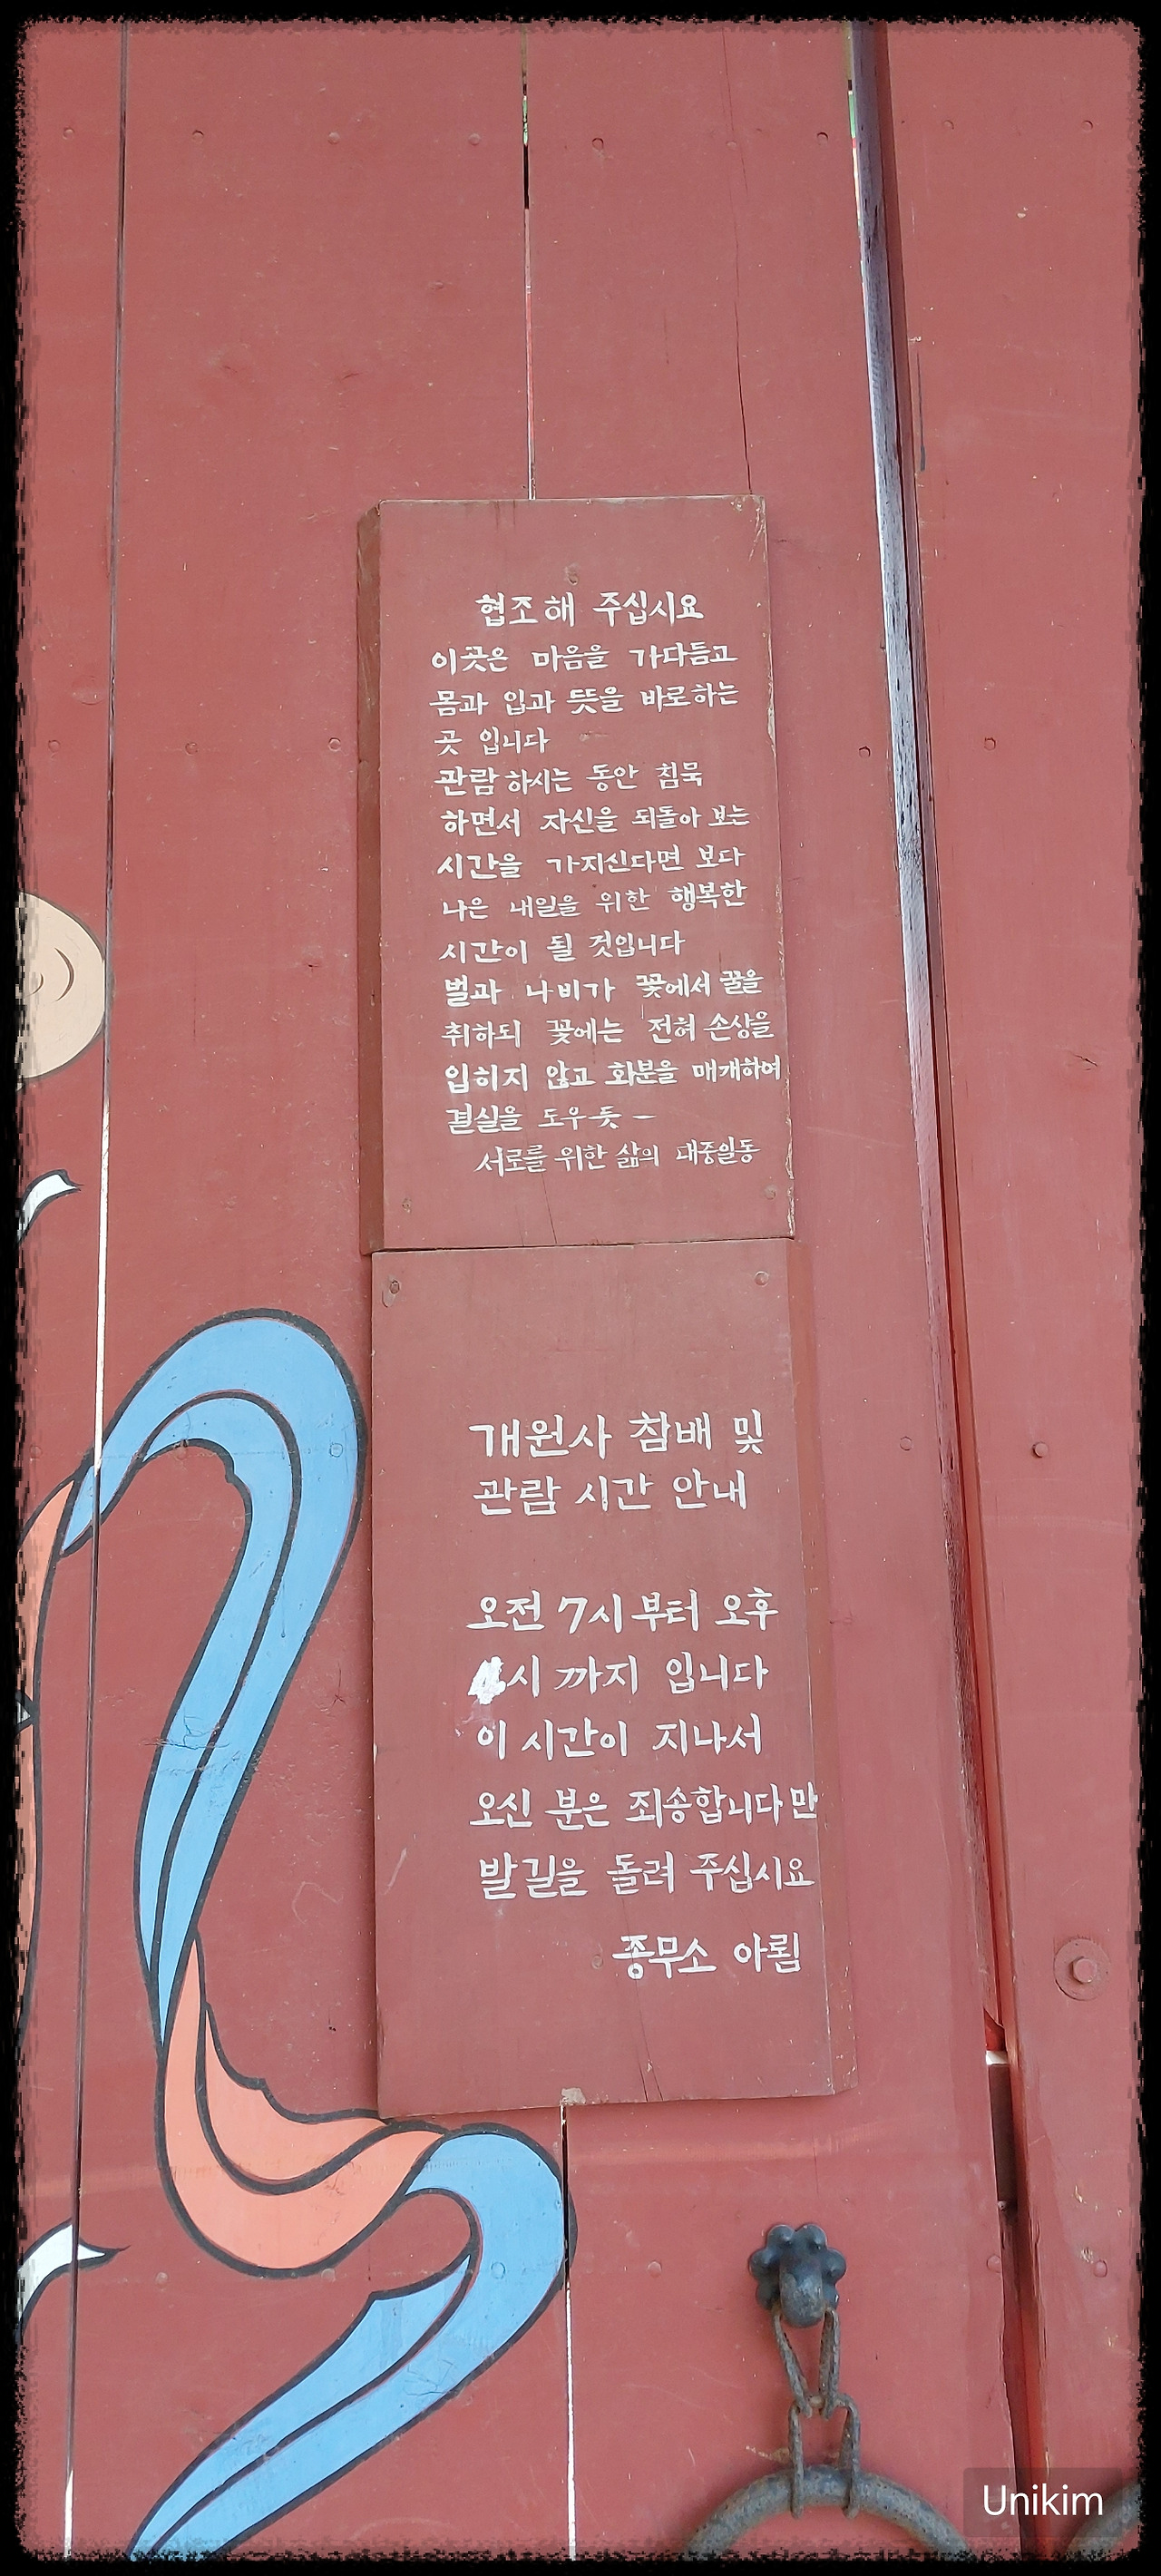 협조해 주십시요
이곳은 마음을 가다듬고
몸과 입과 뜻을 바로하는
곳 입니다
관람하시는 동안 침묵
하면서 자신을 되돌아 보는
시간을 가지신다면 보다
나은 내일을 위한 행복한
시간이 될 것입니다
벌과 나비가 꽃에서 꿀을
취하되 꽃에는 전혀 손상을
입히지 않고 화분을 매개하여
결실을 도우듯 ―
서로를 위한 삶의 대중일동
개원사 참배 및
관람 시간 안내
오전 7시부터 오후
시 까지 입니다
이 시간이 지나서
오신 분은 죄송합니다만
발길을 돌려 주십시요
종무소 아룀
Unikim